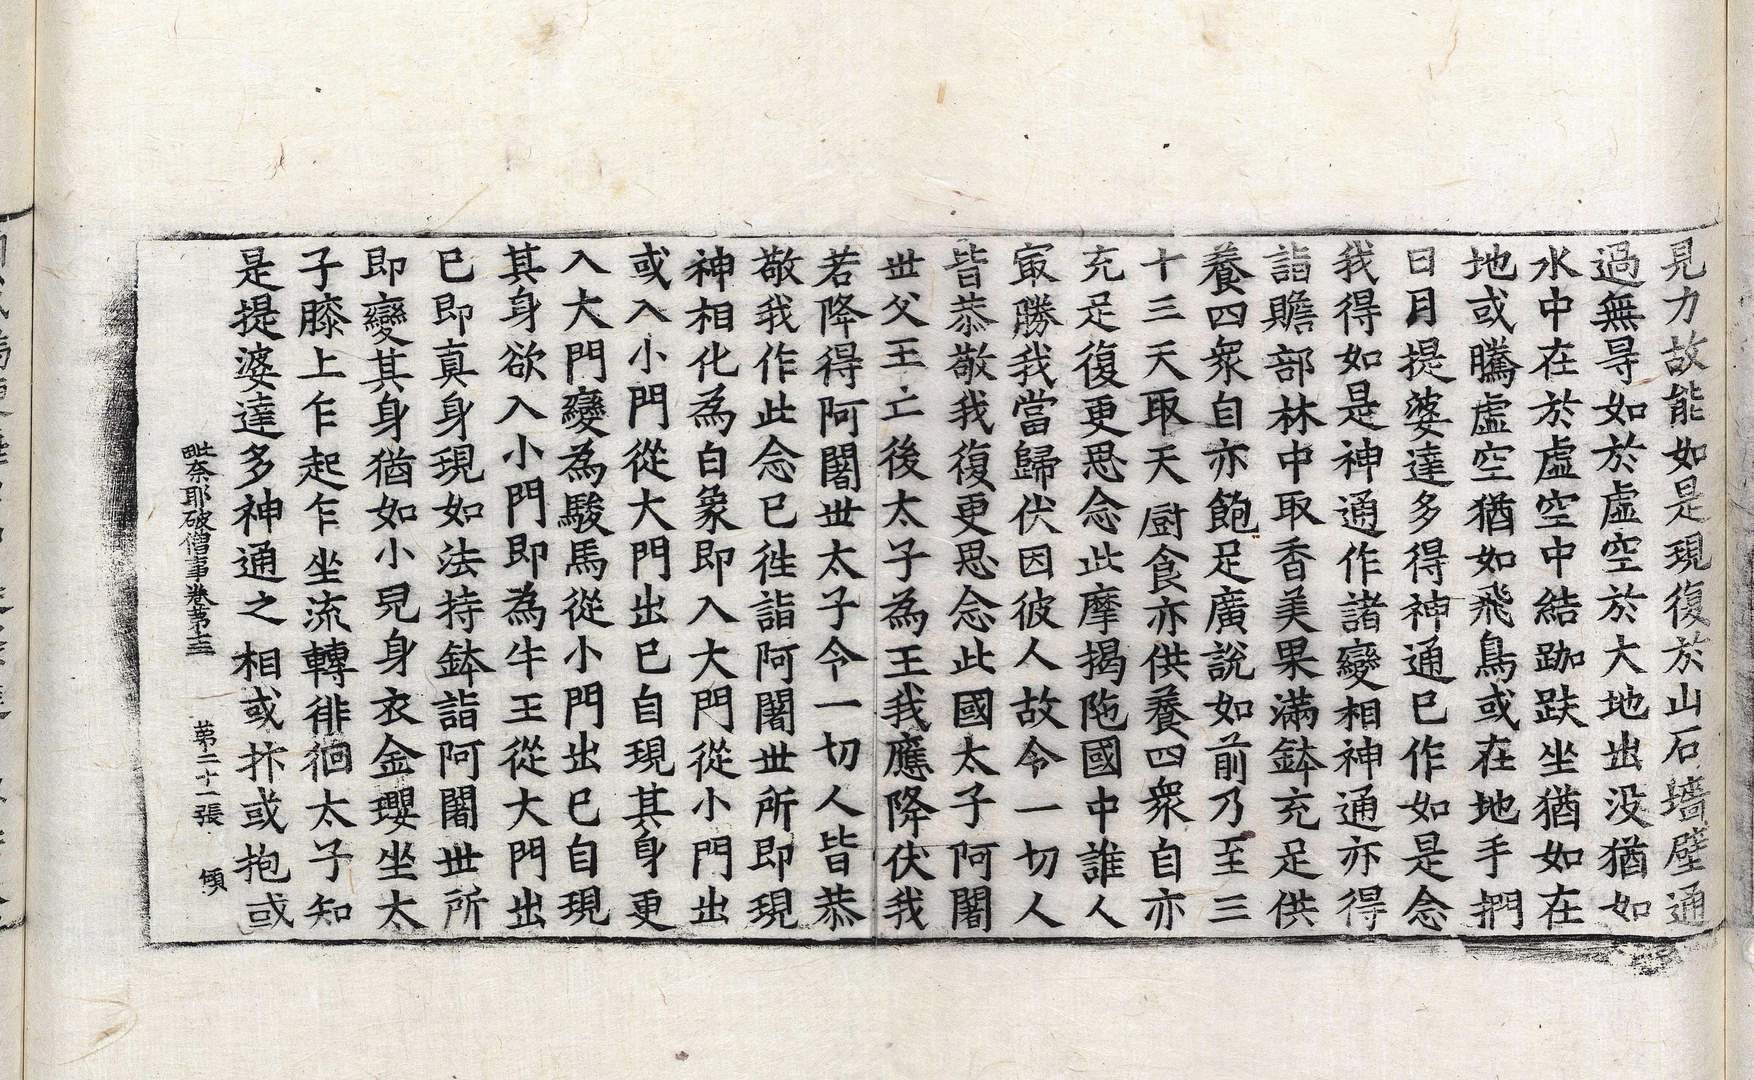 見力故能如是現復於山石墻壁通
過無㝵如於虛空於大地出没猶如
水中在於虛空中結跏趺坐猶如在
地或騰虛空猶如飛鳥或在地手捫
日月提婆達多得神通已作如是念
我得如是神通作諸變相神通亦得
詣贍部林中取香美果滿鉢充足供
養四衆自亦飽足廣說如前乃至三
十三天取天廚食亦供養四衆自亦
充足復更思念此摩揭陁國中誰人
㝡勝我當歸伏因彼人故令一切人
皆恭敬我復更思念此國太子阿闍
丗父王亡後太子為王我應降伏我
若降得阿闍丗太子令一切人皆恭
敬我作此念已徃詣阿闍丗所即現
神相化為白象即入大門從小門出
或入小門從大門出已自現其身更
入大門變為駿馬從小門出已自現
其身欲入小門即為牛王從大門出
已即真身現如法持鉢詣阿闍丗所
即變其身猶如小兒身衣金瓔坐太
子膝上乍起乍坐流轉徘徊太子知
是提婆達多神通之相或抃或抱或
毗奈耶破僧事卷第十三 第二十一張 傾